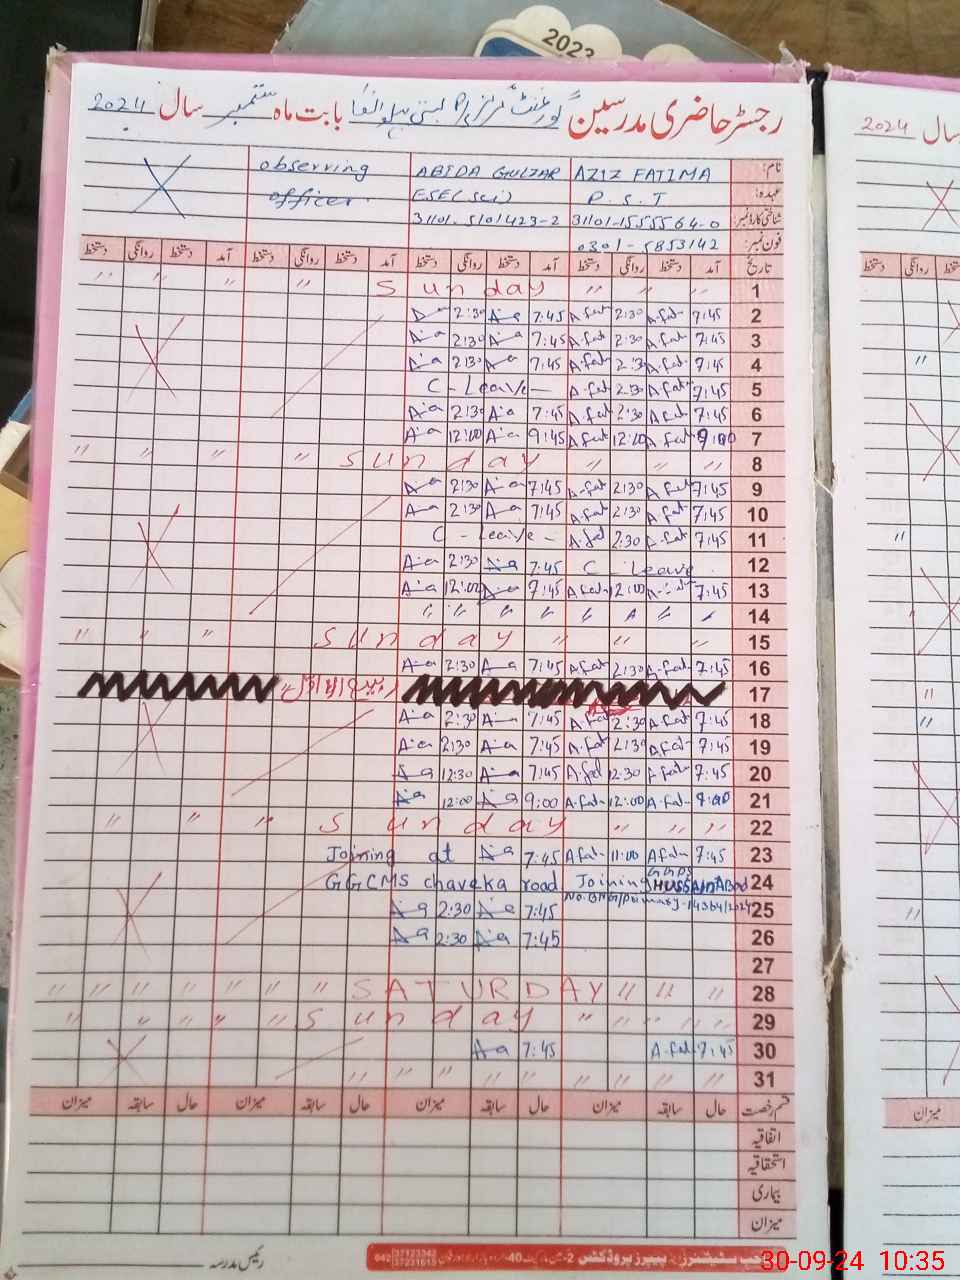 2023
رجسٹر حاضری مدرسین گورنمنٹ گرلز بابت ماہ ستمبر سال 2024
سال 2024
نام: AZIZ FATIMA ABIDA GULZAR observing
عہدہ: P.S.T ESE(sci) officer
شناختی کارڈ نمبر: 31101-1555564-0 31101-5101423-2
فون نمبر: 0301-5853142
تاریخ آمد دستخط روانگی دستخط آمد دستخط روانگی دستخط آمد دستخط روانگی دستخط آمد دستخط روانگی دستخط
1 " " " Sunday " " " "
2 7:45 A.fat 2:30 A.fat 7:45 Aa 2:30 Aa
3 7:45 A.fat 2:30 A.fat 7:45 Aa 2:30 Aa
4 7:45 A.fat 2:30 A.fat 7:45 Aa 2:30 Aa
5 7:45 A.fat 2:30 A.fat C-Leave-
6 7:45 A.fat 2:30 A.fat 7:45 Aa 2:30 Aa
7 9:00 A.fat 12:00 A.fat 9:45 Aa 12:00 Aa
8 " " " Sunday " " " "
9 7:45 A.fat 2:30 A.fat 7:45 Aa 2:30 Aa
10 7:45 A.fat 2:30 A.fat 7:45 Aa 2:30 Aa
11 7:45 A.fat 2:30 A.fat C-Leave-
12 C-Leave 7:45 Aa 2:30 Aa
13 7:45 A.fat 12:00 A.fat 7:45 Aa 12:00 Aa
14 " " " " " " "
15 " " " Sunday " " "
16 7:45 A.fat 2:30 A.fat 7:45 Aa 2:30 Aa
17
18 7:45 A.fat 2:30 A.fat 7:45 Aa 2:30 Aa
19 7:45 A.fat 2:30 A.fat 7:45 Aa 2:30 Aa
20 7:45 A.fat 12:30 A.fat 7:45 Aa 12:30 Aa
21 9:00 A.fat 12:00 A.fat 9:00 Aa 12:00 Aa
22 " " " Sunday " " "
23 7:45 A.fat 11:00 A.fat 7:45 Aa Joining at
24 Joining GGPS HUSSAINABad GGCMS chaveka road
25 7:45 Aa 2:30 Aa
26 7:45 Aa 2:30 Aa
27
28 " " " SATURDAY " " " " " " "
29 " " " " " Sunday " " " " " "
30 7:45 A.fat 7:45 Aa
31 " " " " " " " "
قسم رخصت حال سابقہ میزان حال سابقہ میزان حال سابقہ میزان حال سابقہ میزان
میزان
اتفاقیہ
استحقاقیہ
بیماری
میزان
رئیس مدرسہ
042 37123342 37231615
30-09-24 10:35